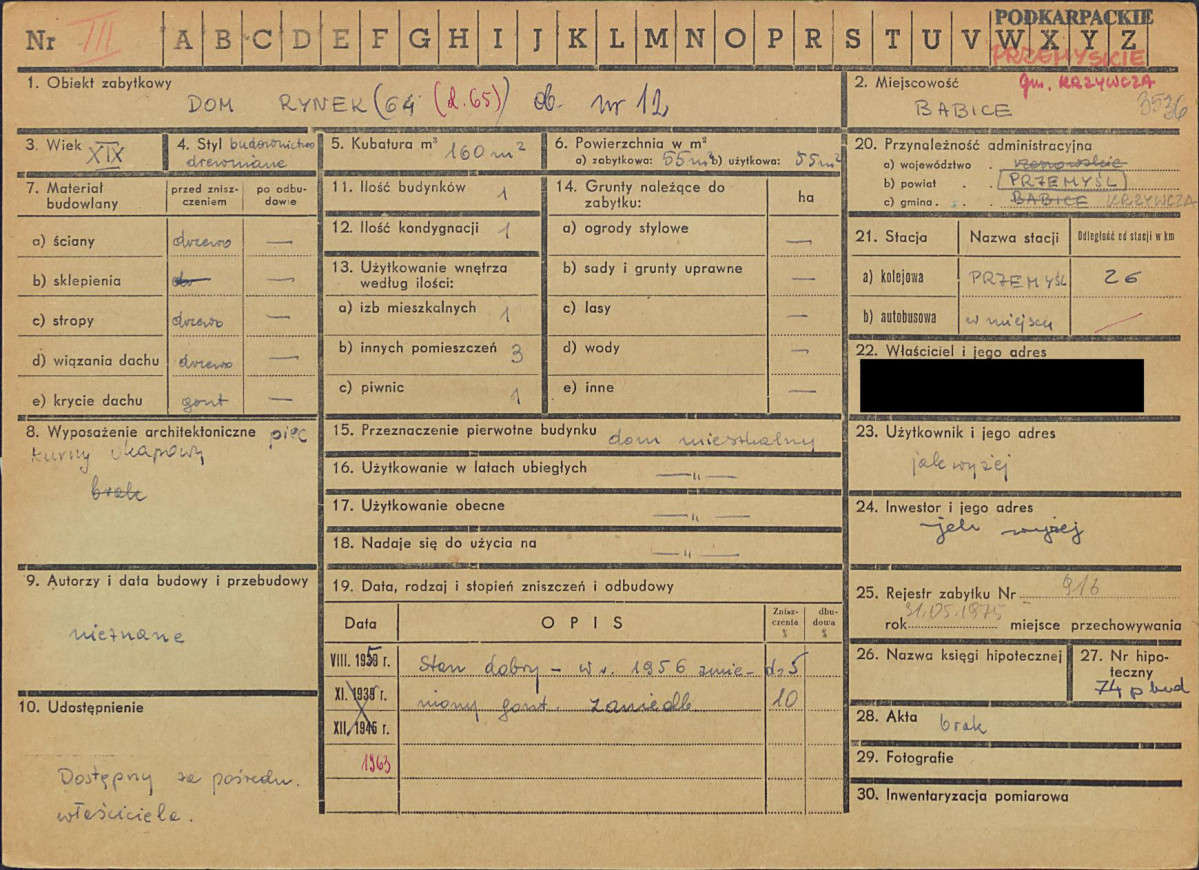 Nr III A B C D E F G H I J K L M N O P R S T U V W X Y Z
PODKARPACKIE
PRZEMYSKIE
1. Obiekt zabytkowy
DOM RYNEK (64 (d. 65)) ob. nr 12
2. Miejscowość
gm. KRZYWCZA
BABICE
3536
3. Wiek XIX
4. Styl budownictwo
drewniane
5. Kubatura m³ 160 m²
6. Powierzchnia w m²
a) zabytkowa: 55 m² b) użytkowa: 55 m²
7. Materiał
budowlany
przed znisz-
czeniem
po odbu-
dowie
a) ściany drzewo —
b) sklepienia —
c) stropy drzewo —
d) wiązania dachu drzewo —
e) krycie dachu gont —
8. Wyposażenie architektoniczne piec
kurny okapowy
brak
9. Autorzy i data budowy i przebudowy
nieznane
10. Udostępnienie
Dostępny za pośredn.
właściciela.
11. Ilość budynków 1
12. Ilość kondygnacji 1
13. Użytkowanie wnętrza
według ilości:
a) izb mieszkalnych 1
b) innych pomieszczeń 3
c) piwnic 1
14. Grunty należące do
zabytku:
ha
a) ogrody stylowe —
b) sady i grunty uprawne —
c) lasy —
d) wody —
e) inne —
15. Przeznaczenie pierwotne budynku dom mieszkalny
16. Użytkowanie w latach ubiegłych —"—
17. Użytkowanie obecne —"—
18. Nadaje się do użycia na —"—
19. Data, rodzaj i stopień zniszczeń i odbudowy
Data
OPIS
Znisz-
czenia
%
dbu-
dowa
%
VIII. 1959 r. Stan dobry – w r. 1956 zmie- d. 5
XI. 1939 r. niony gont. zaniedb. 10
XII. 1945 r.
1963
20. Przynależność administracyjna
a) województwo . rzeszowskie
b) powiat . . PRZEMYŚL
c) gmina . . . BABICE KRZYWCZA
21. Stacja
Nazwa stacji
Odległość od stacji w km
a) kolejowa PRZEMYŚL 26
b) autobusowa w miejscu
22. Właściciel i jego adres
23. Użytkownik i jego adres
jak wyżej
24. Inwestor i jego adres
jak wyżej
25. Rejestr zabytku Nr 916
rok 31.05.1975 miejsce przechowywania
26. Nazwa księgi hipotecznej
27. Nr hipo-
teczny
74 p bud
28. Akta brak
29. Fotografie
30. Inwentaryzacja pomiarowa